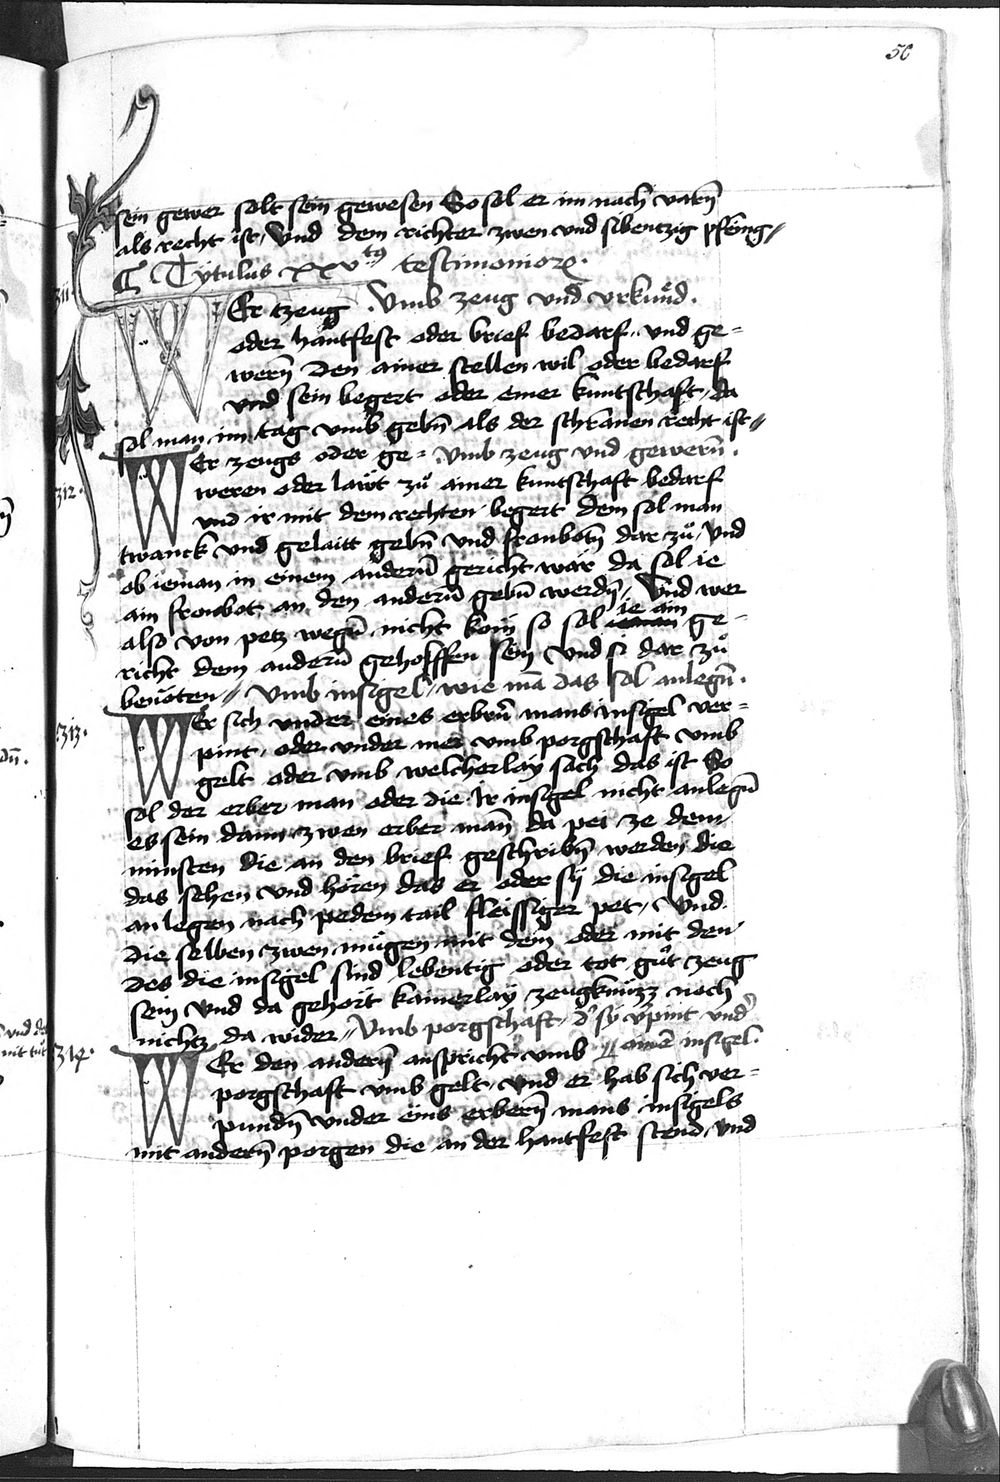 50
sein gewer solt sein gewesen So sol er im nach varn̄
als recht ist / Vnd dem richter zwen vnd sibentzig pfēing //
Tytulus xxv tus testimonioꝝ.
311
Er tzeug Vmb zeug vnd vrkund.
oder hantfest oder brief bedarf vnd ge=
wern̄ Den ainer stellen wil oder bedarf
vnd sein begert oder einer kuntschaft da
sol man im tag vmb gebn̄ als der schrannen recht ist //
312.
WEr zeugs oder ge= Vmb zeug vnd gewern̄.
weren oder lawt zů ainer kuntschaft bedarf
vnd ir mit dem rechten begert dem sol man
twanck vnd gelaitt gebn̄ vnd fronbotn̄ dar zů / Vnd
ob ieman in einem andern̄ gericht wär da sol ie
ain fronbot an den andern̄ gebn̄ werdn̄ / Vnd wer
also von petz wegn̄ nicht kom so sol ie ain ge=
richt dem andern̄ geholffen sein Vnd si dar zů
benöten // Vmb insigel / wie mā das sol anlegn̄.
313.
WEr sich vnder eines erbrn̄ mans insigel ver=
pint / oder vnder mer vmb porgschaft vmb
gelt oder vmb welcherlay sach das ist So
sol der erber man oder die Ir insigel nicht anlegn̄
es sein dann zwen erber man̄ da pei ze dem
minsten die an den brief geschribn̄ werden die
das sehen vnd hören das er oder sy die insigel
anlegen nach pedem tail fleissiger pet / Vnd
die selben zwen mügen mit dem oder mit den
des die insigel sind lebentig oder tot gůt zeug
sein Vnd da gehört kainerlay zeugknüzz noch
nichtz da wider // Vmb porgschaft / d' sy vpint vnd'
314.
WEr den andern̄ anspricht vmb // ainē insigel.
porgschaft vmb gelt / vnd er hab sich ver=
pundn̄ vnder eins erbern̄ mans insigels
mit andern̄ porgen die an der hantfest stend / vnd